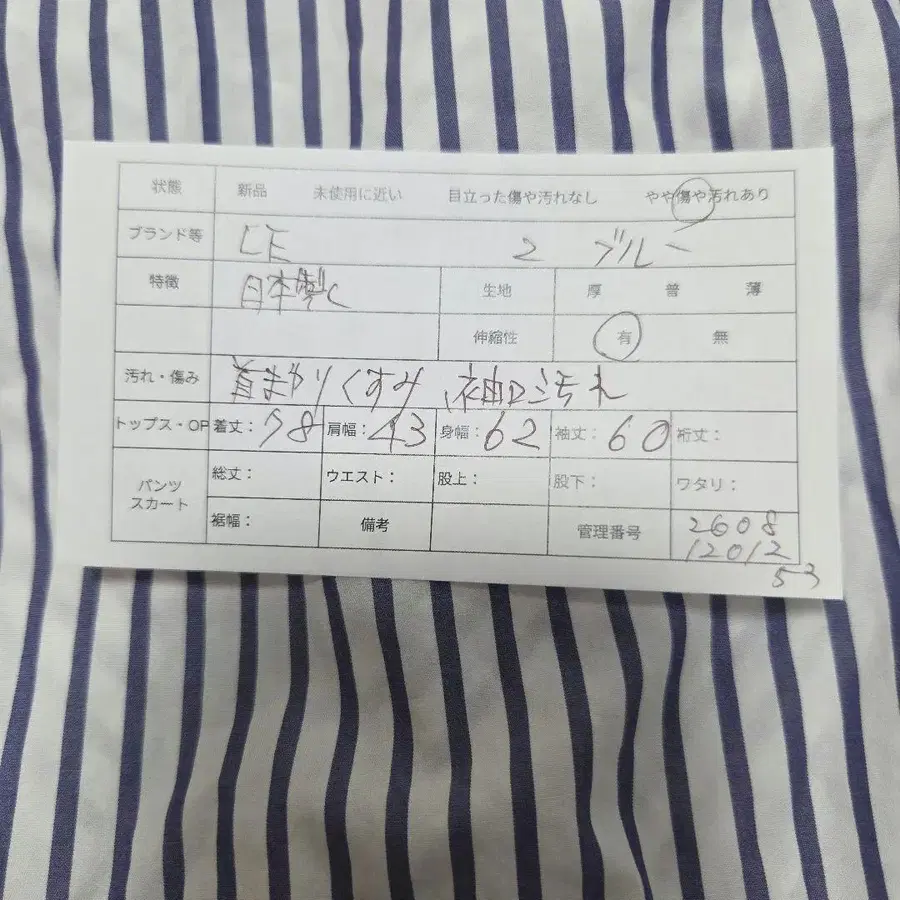 状態 新品 未使用に近い 目立った傷や汚れなし やや傷や汚れあり
ブランド等 LE 2 ブルー
特徴 日本製 生地 厚 普 薄
伸縮性 有 無
汚れ・傷み 首まわりくすみ、袖口汚れ
トップス・OP 着丈:78 肩幅:43 身幅:62 袖丈:60 裄丈:
パンツ スカート 総丈: ウエスト: 股上: 股下: ワタリ:
裾幅: 備考 管理番号 2608
12012
53